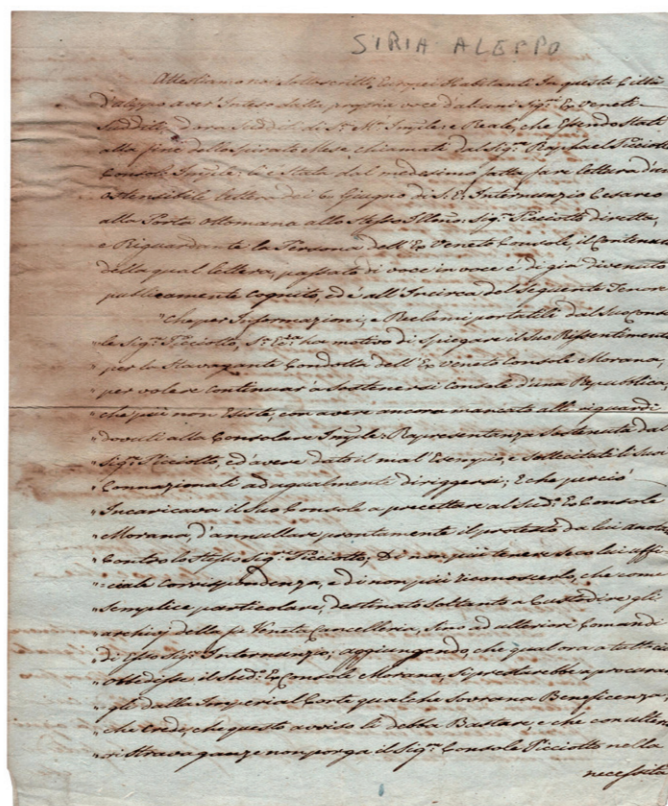 SIRIA ALEPPO
Attestiamo noi sottoscritti Europei Habitanti In questa Città
d'aleppo aver Inteso dalla propria voce d'alcuni Sigri Ex Veneti
Sudditi, ed ora Sudditi di S. M. Imple e Reale, che Essendo Stati
alla fine dello spirato Mese chiamati dal Sigr Raphael Picciotto
Console Imple li è Stata dal medesimo fatta fare lettura d'una
ostensibile lettera dei 6 Giugno di S.E. Internunzio Cesareo
alla Porta Ottomana allo Stesso Illmo Sigr Picciotto diretta,
e Riguardante la Persona dell'Ex Veneto Console, il Contenuto
della qual lettera, passato di voce in voce è di già divenuto
publicamente cognito, ed è all'Incirca del Seguente Tenore
che per Informazioni, e Reclami portatili dal Suo Conso
le Sigr Picciotto, S. E. ha motivo di Spiegare il Suo Rissentimento
per la Stravagante Condotta dell'Ex Veneto Console Morana,
per volere continuar a Sostenersi Console d'una Republica
che più non Esiste, con avere ancora mancato alli riguardi
dovuti alla Consolare Imple Rapresentanza Sostenuta dal
Sigr Picciotto, ed'avere dato il mal'Esempio, e Sollecitati li Suoi
Connazionali ad egualmente diriggersi; E che perciò
Incaricava il Suo Console a precettare al Sudo Ex Console
Morana, d'annullare prontamente il protesto da lui
Contro lo stesso Sigr Picciotto, Di non più tenere Seco lui uffi
ciale corrispondenza, e di non più riconoscerlo, che come
Semplice particolare, destinato Soltanto a Custodire gli
archivj della fu Veneta Cancelleria, Sino ad ulteriori Comandi
di Esso Sigr Internunzio; aggiungendo, che qualora a tutto ciò
il Sudo Ex Console Morana, Si presterebbe a procurar
gli dalla Imperial Corte qualche Sovrana Beneficenza,
che crede, che questo avviso li debba Bastare, e che con ulte
ri Stravaganze non porga il Sigr Console Picciotto nella
necessità